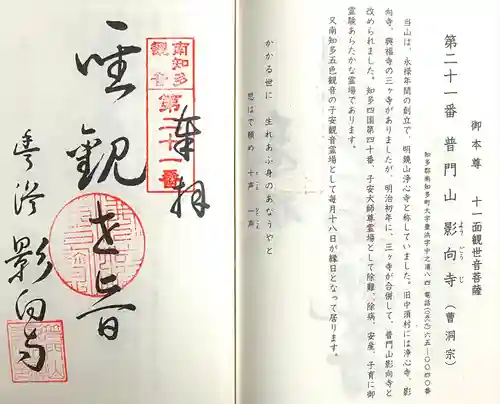 御本尊　十一面観世音菩薩
第二十一番　普門山　影向寺（曹洞宗）
ようごうじ
知多郡南知多町大字豊浜字中之浦八四　電話（〇五六九）六五－〇〇四〇番
当山は、永禄年間の創立で、明鏡山浄心寺と称していました。旧中須村には浄心寺、影
向寺、興福寺の三ヶ寺がありましたが、明治初年に、三ヶ寺が合併して、普門山影向寺と
改められました。知多四国第四十番、子安大師尊霊場として除難、除病、安産、子育に御
霊験あらたかな霊場であります。
又南知多五色観音の子安観音霊場として毎月十八日が縁日となって居ります。
かかる世に　生れあふ身のあなうやと
思はで頼め　十声　一声
とこえ　ひとこえ
奉拝
南知多
観音
第二十一番
聖観世音
豊浜　影向寺